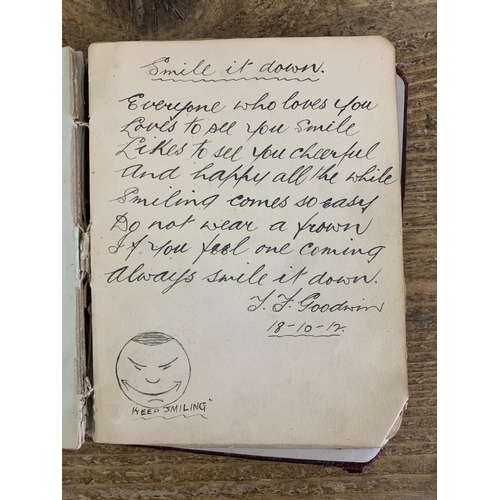 Smile it down.
Everyone who loves you
Loves to see you smile
Likes to see you cheerful
And happy all the while
Smiling comes so easy
Do not wear a frown
If you feel one coming
Always smile it down.
T. F. Goodwin
18-10-12.
"KEEP SMILING"